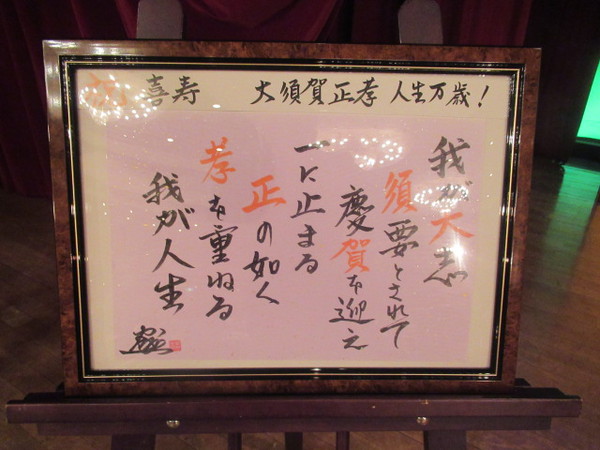 祝 喜寿 大須賀正孝 人生万歳！
我が大志
須要とされて
慶賀を迎え
一に止まる
正の如く
孝を重ねる
我が人生